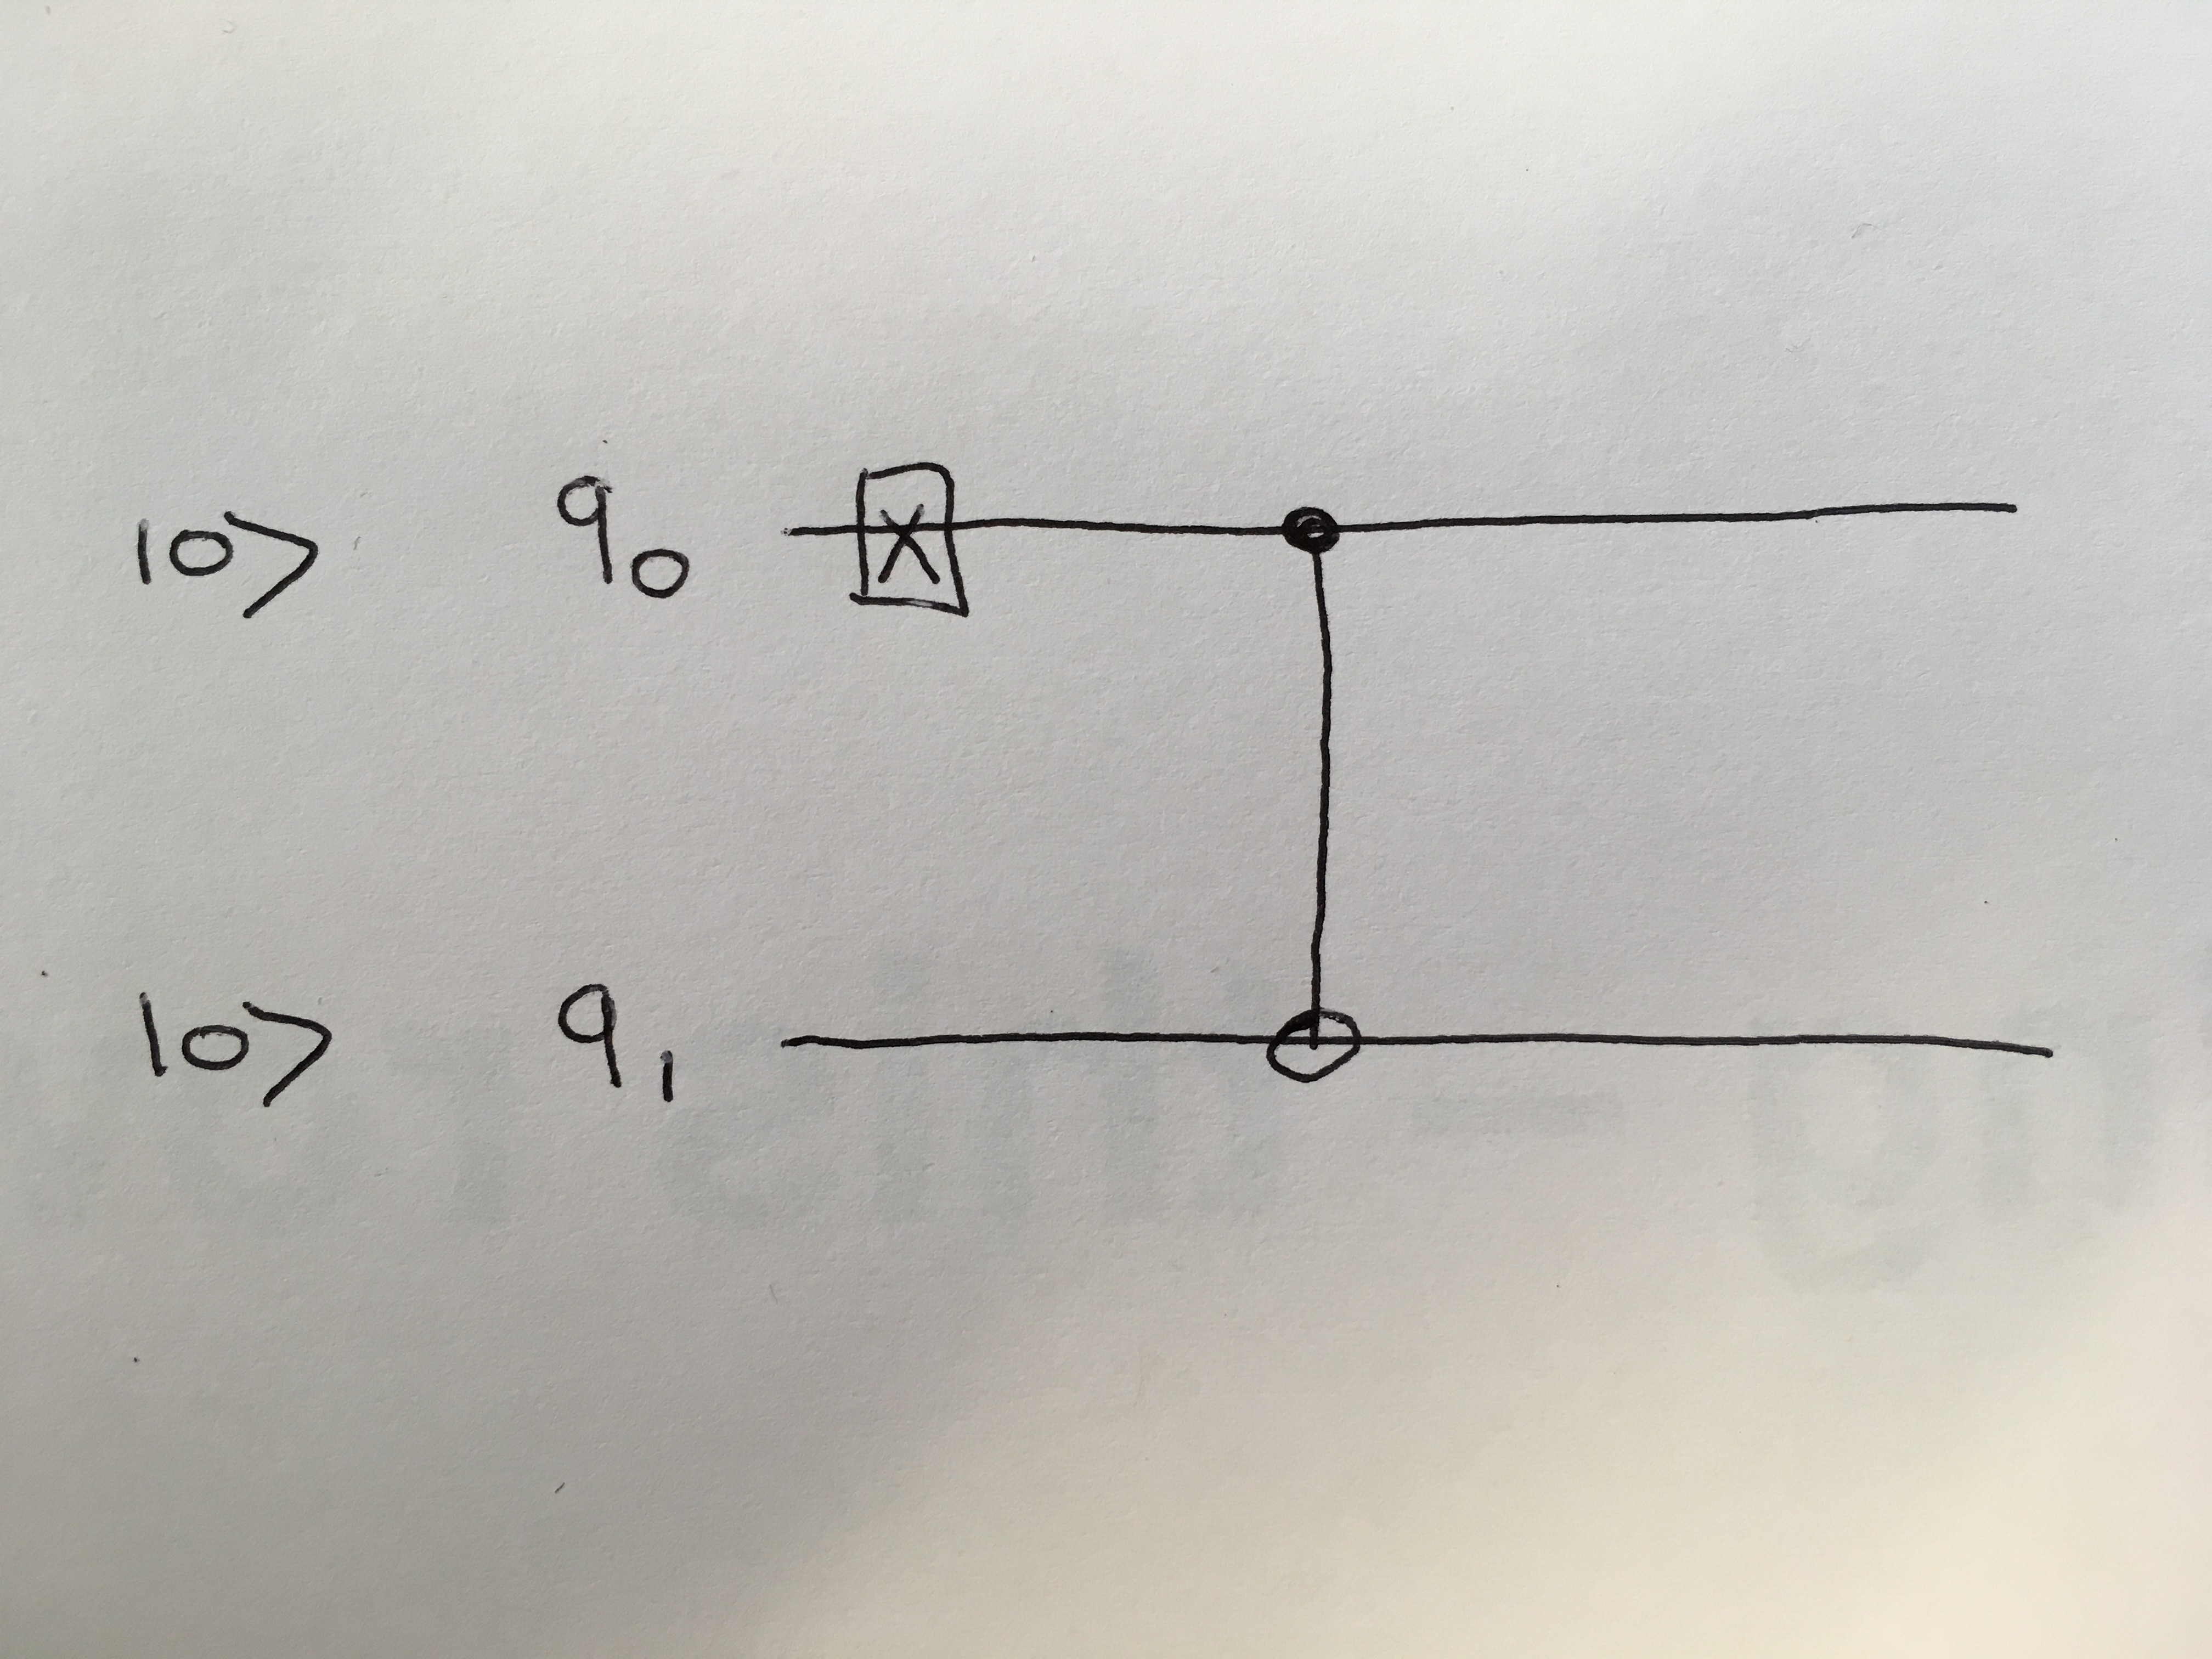 |0> q0 X
|0> q1